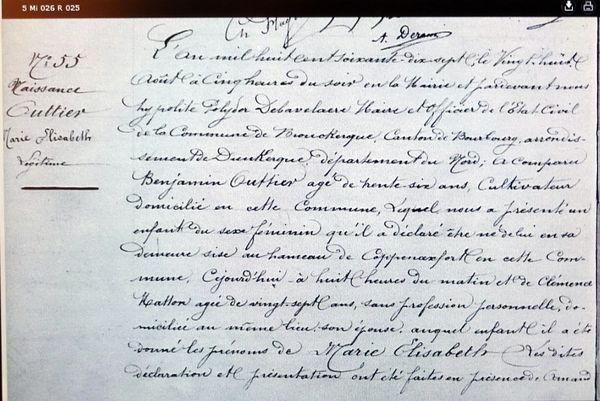 5 Mi 026 R 025
A. Deram
N° 55
Naissance
Outtier
Marie Elisabeth
légitime
L'An mil huit cent soixante-dix-sept, le Vingt-huit
Août à Cinq heures du soir en la Mairie et pardevant nous
hypolite Polydor Debavelaere Maire et Officier de l'Etat Civil
de la Commune de Brouckerque, Canton de Bourbourg, arrondis-
sement de Dunkerque, département du Nord; a Comparu
Benjamin Outtier agé de trente-six ans, Cultivateur
domicilié en cette Commune, Lequel nous a présenté un
enfant du sexe féminin qu'il a déclaré être né de lui en sa
demeure sise au hameau de Coppenaxfort en cette Com-
mune, Cejourd'hui à huit heures du matin et de Clémence
Hatton agée de vingt-sept ans, sans profession personnelle, do-
miciliée au même lieu son épouse, auquel enfant il a été
donné les prénoms de Marie Elisabeth Les dites
déclaration et présentation ont été faites en présence de Amand